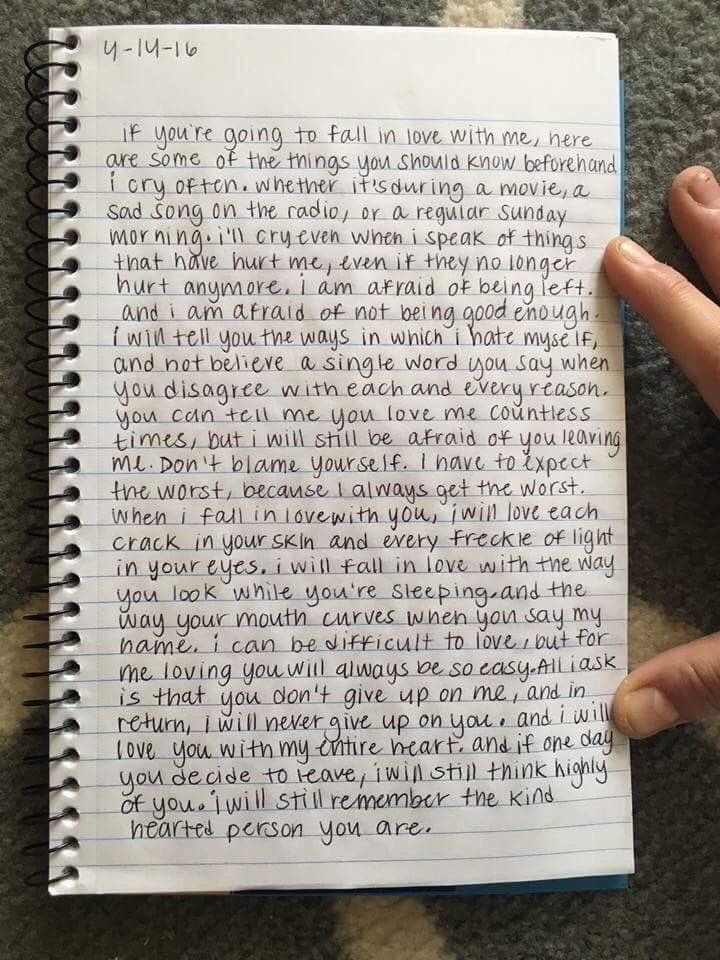 4-14-16
if you're going to fall in love with me, here
are some of the things you should know beforehand
i cry often. whether it's during a movie, a
sad song on the radio, or a regular sunday
morning. i'll cry even when i speak of things
that have hurt me, even if they no longer
hurt anymore. i am afraid of being left.
and i am afraid of not being good enough.
i will tell you the ways in which i hate myself,
and not believe a single word you say when
you disagree with each and every reason.
you can tell me you love me countless
times, but i will still be afraid of you leaving
me. Don't blame yourself. I have to expect
the worst, because I always get the worst.
When i fall in love with you, i will love each
crack in your skin and every freckle of light
in your eyes. i will fall in love with the way
you look while you're sleeping, and the
way your mouth curves when you say my
name. i can be difficult to love, but for
me loving you will always be so easy. All i ask
is that you don't give up on me, and in
return, i will never give up on you. and i will
love you with my entire heart. and if one day
you decide to leave, i will still think highly
of you. i will still remember the kind
hearted person you are.